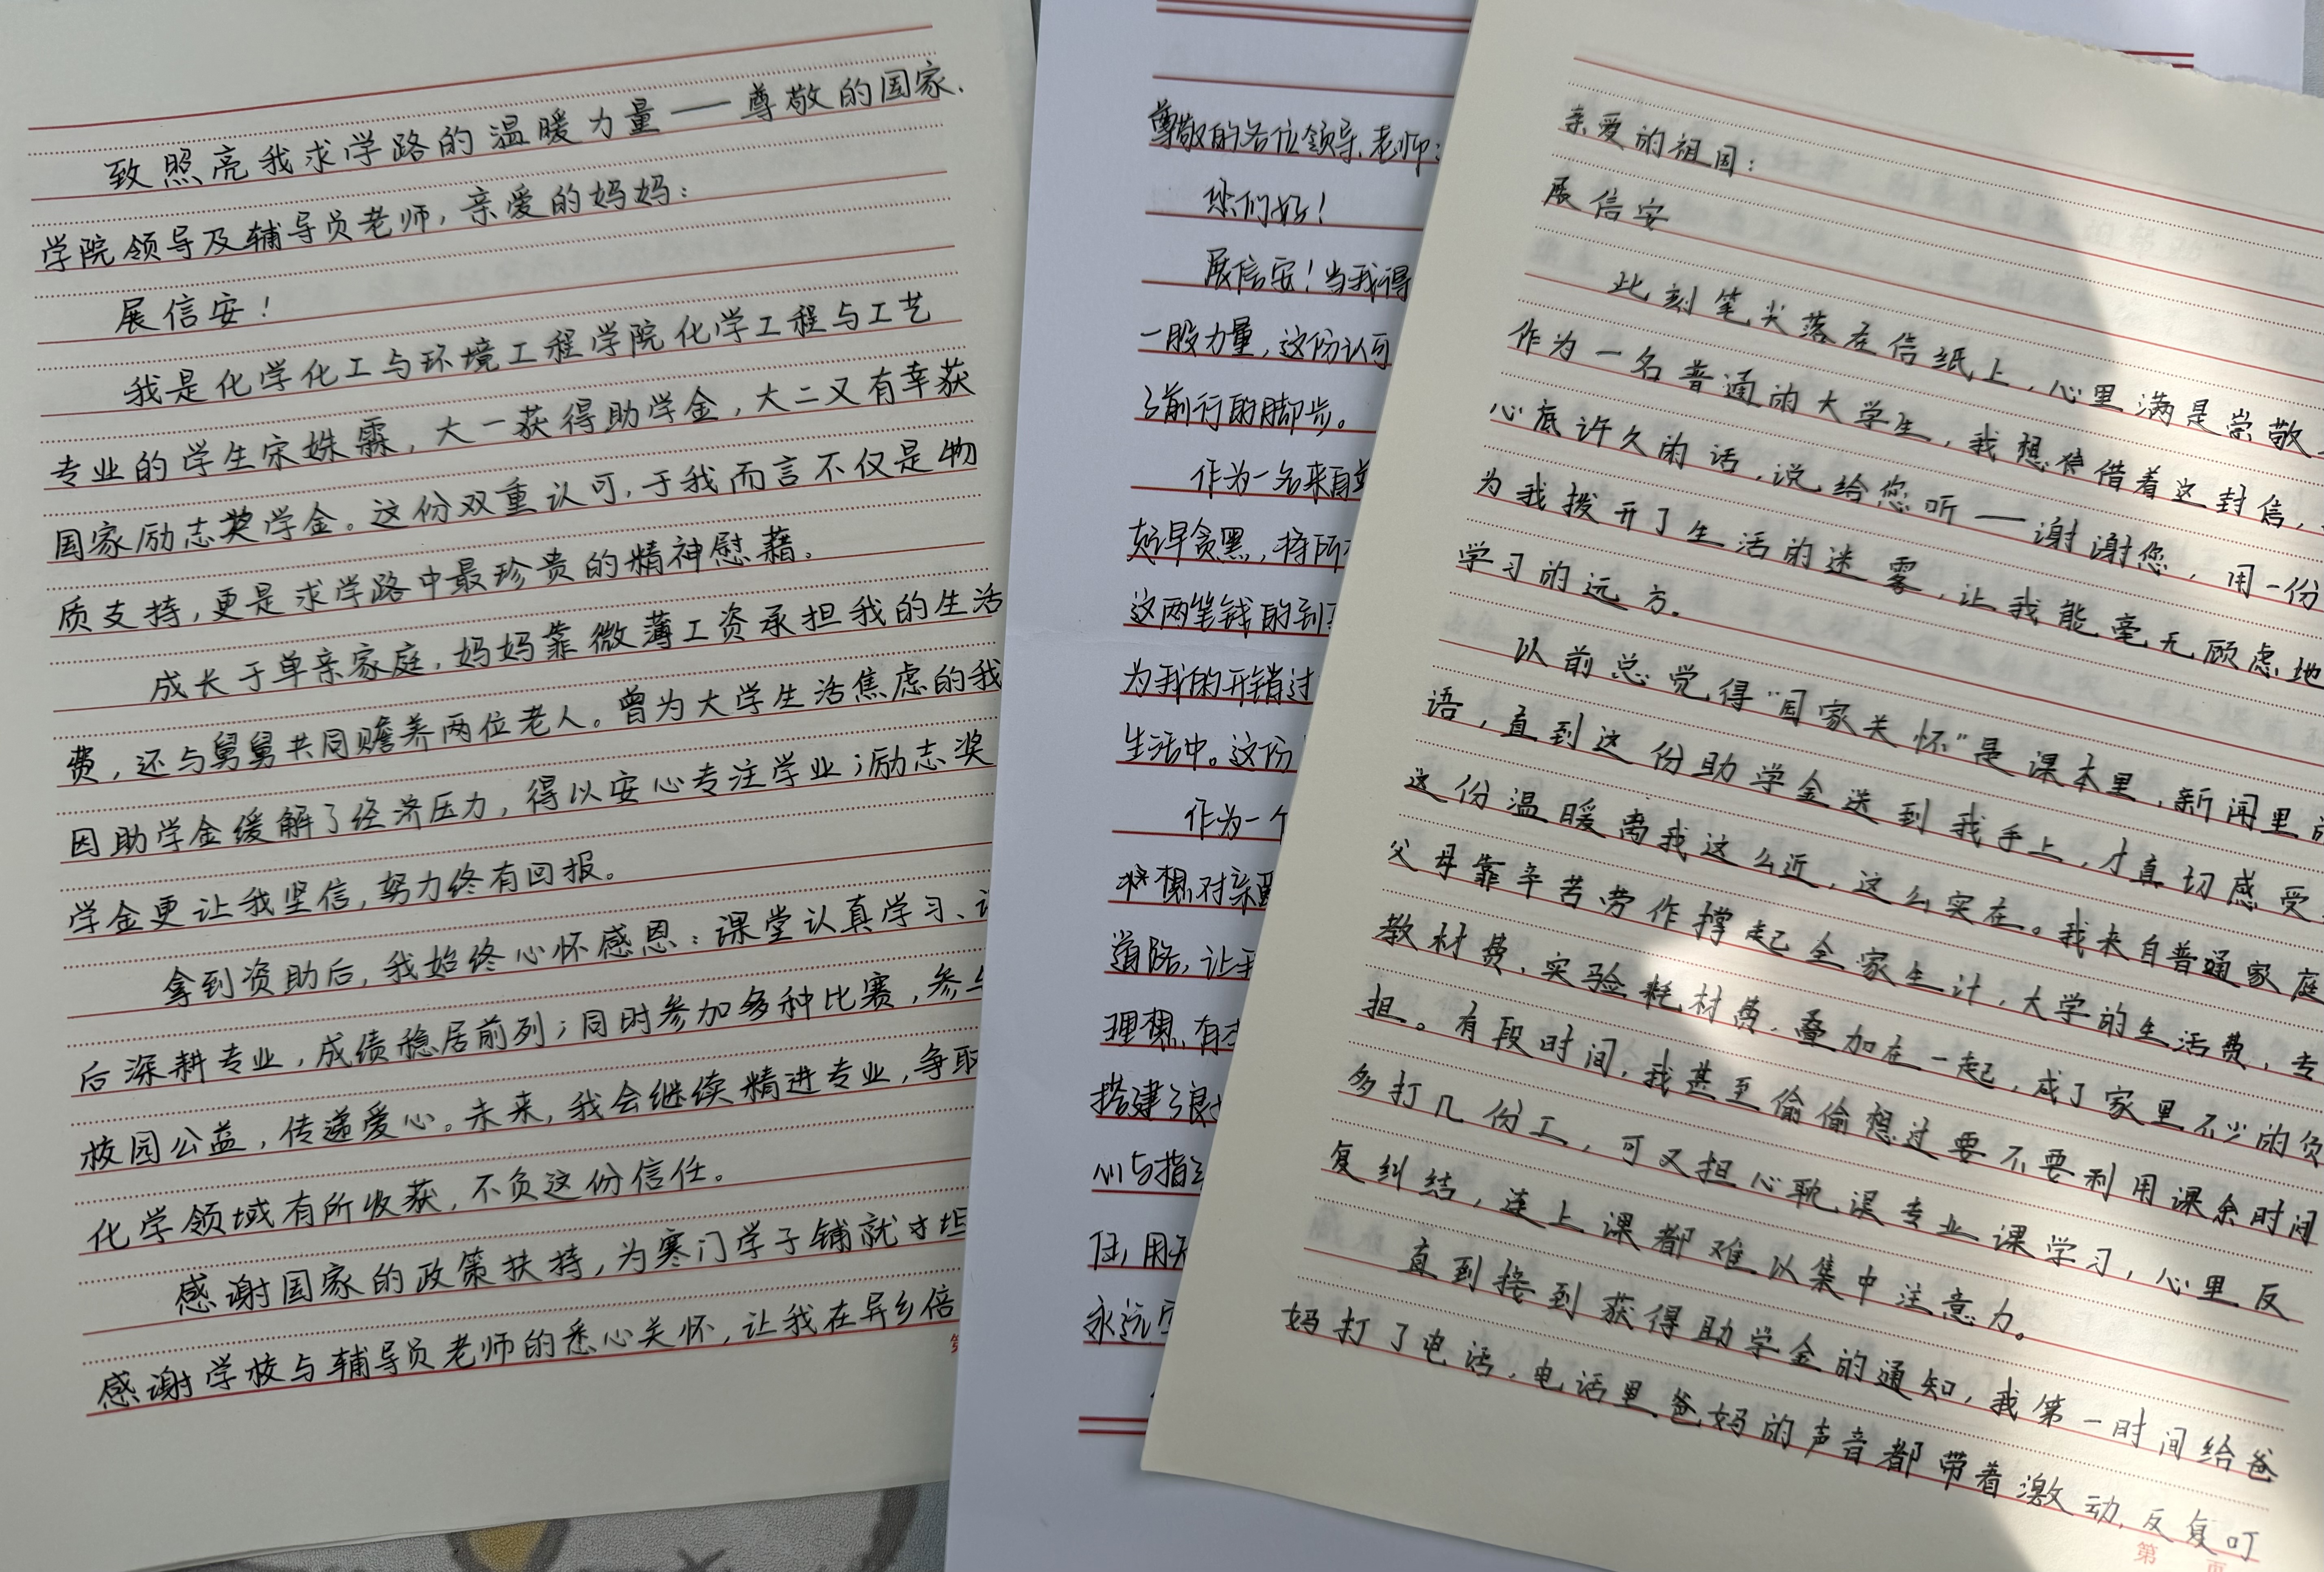 致照亮我求学路的温暖力量——尊敬的国家、
学院领导及辅导员老师,亲爱的妈妈:
展信安!
我是化学化工与环境工程学院化学工程与工艺
专业的学生宋姝霖,大一获得助学金,大二又有幸获
国家励志奖学金。这份双重认可,于我而言不仅是物
质支持,更是求学路中最珍贵的精神慰藉。
成长于单亲家庭,妈妈靠微薄工资承担我的生活
费,还与舅舅共同赡养两位老人。曾为大学生活焦虑的我
因助学金缓解了经济压力,得以安心专注学业;励志奖
学金更让我坚信,努力终有回报。
拿到资助后,我始终心怀感恩:课堂认真学习、
后深耕专业,成绩稳居前列;同时参加多种比赛,参与
校园公益,传递爱心。未来,我会继续精进专业,争取
化学领域有所收获,不负这份信任。
感谢国家的政策扶持,为寒门学子铺就才坦
感谢学校与辅导员老师的悉心关怀,让我在异乡倍
尊敬的各位领导、老师:
你们好!
展信安!当我得
一股力量,这份认可
了前行的脚步。
作为一名来自
起早贪黑,将所
这两笔钱的到
为我的开销过
生活中。这份
作为一个
怀想对亲
道路,让我
理想、有
搭建了良
心与指
任,用
永远
亲爱的祖国:
展信安
此刻笔尖落在信纸上,心里满是崇敬
作为一名普通的大学生,我想借着这封信,
心底许久的话,说给您听——谢谢您,用一份
为我拨开了生活的迷雾,让我能毫无顾虑地
学习的远方。
以前总觉得"国家关怀"是课本里,新闻里的
语,直到这份助学金送到我手上,才真切感受
这份温暖离我这么近,这么实在。我来自普通家庭
父母靠辛苦劳作撑起全家生计,大学的生活费,专
教材费、实验耗材费,叠加在一起,成了家里不少的负
担。有段时间,我甚至偷偷想过要不要利用课余时间
多打几份工,可又担心耽误专业课学习,心里反
复纠结,连上课都难以集中注意力。
直到接到获得助学金的通知,我第一时间给爸
妈打了电话,电话里爸妈的声音都带着激动,反复叮
第 页